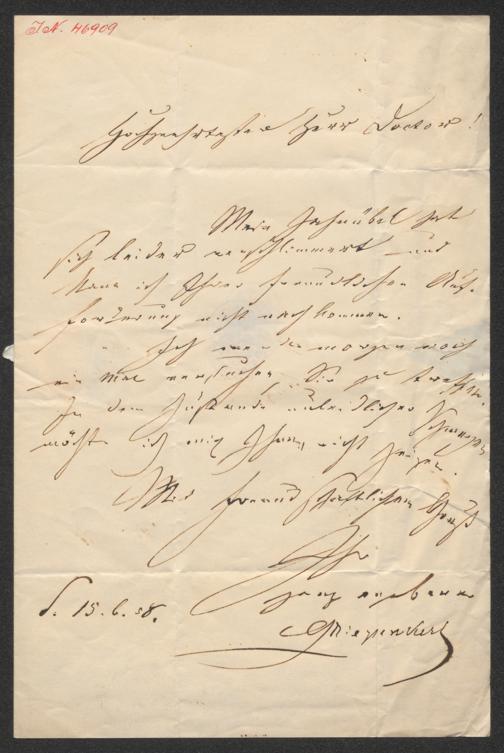 J.N. 46909
Hochgeehrtester Herr Doctor!
Mein Zahnübel hat
sich leider verschlimmert und
kann ich Ihrer freundlichen Auf-
forderung nicht nachkommen.
Ich werde morgen noch
ein mal versuchen Sie zu treffen.
In dem Zustande unleidlicher Schmerzen
möchte ich mich Ihnen nicht zeigen.
Mit freundschaftlichem Gruß
Ihr
ganz ergebener
Griepenkerl
d. 15.6.58.